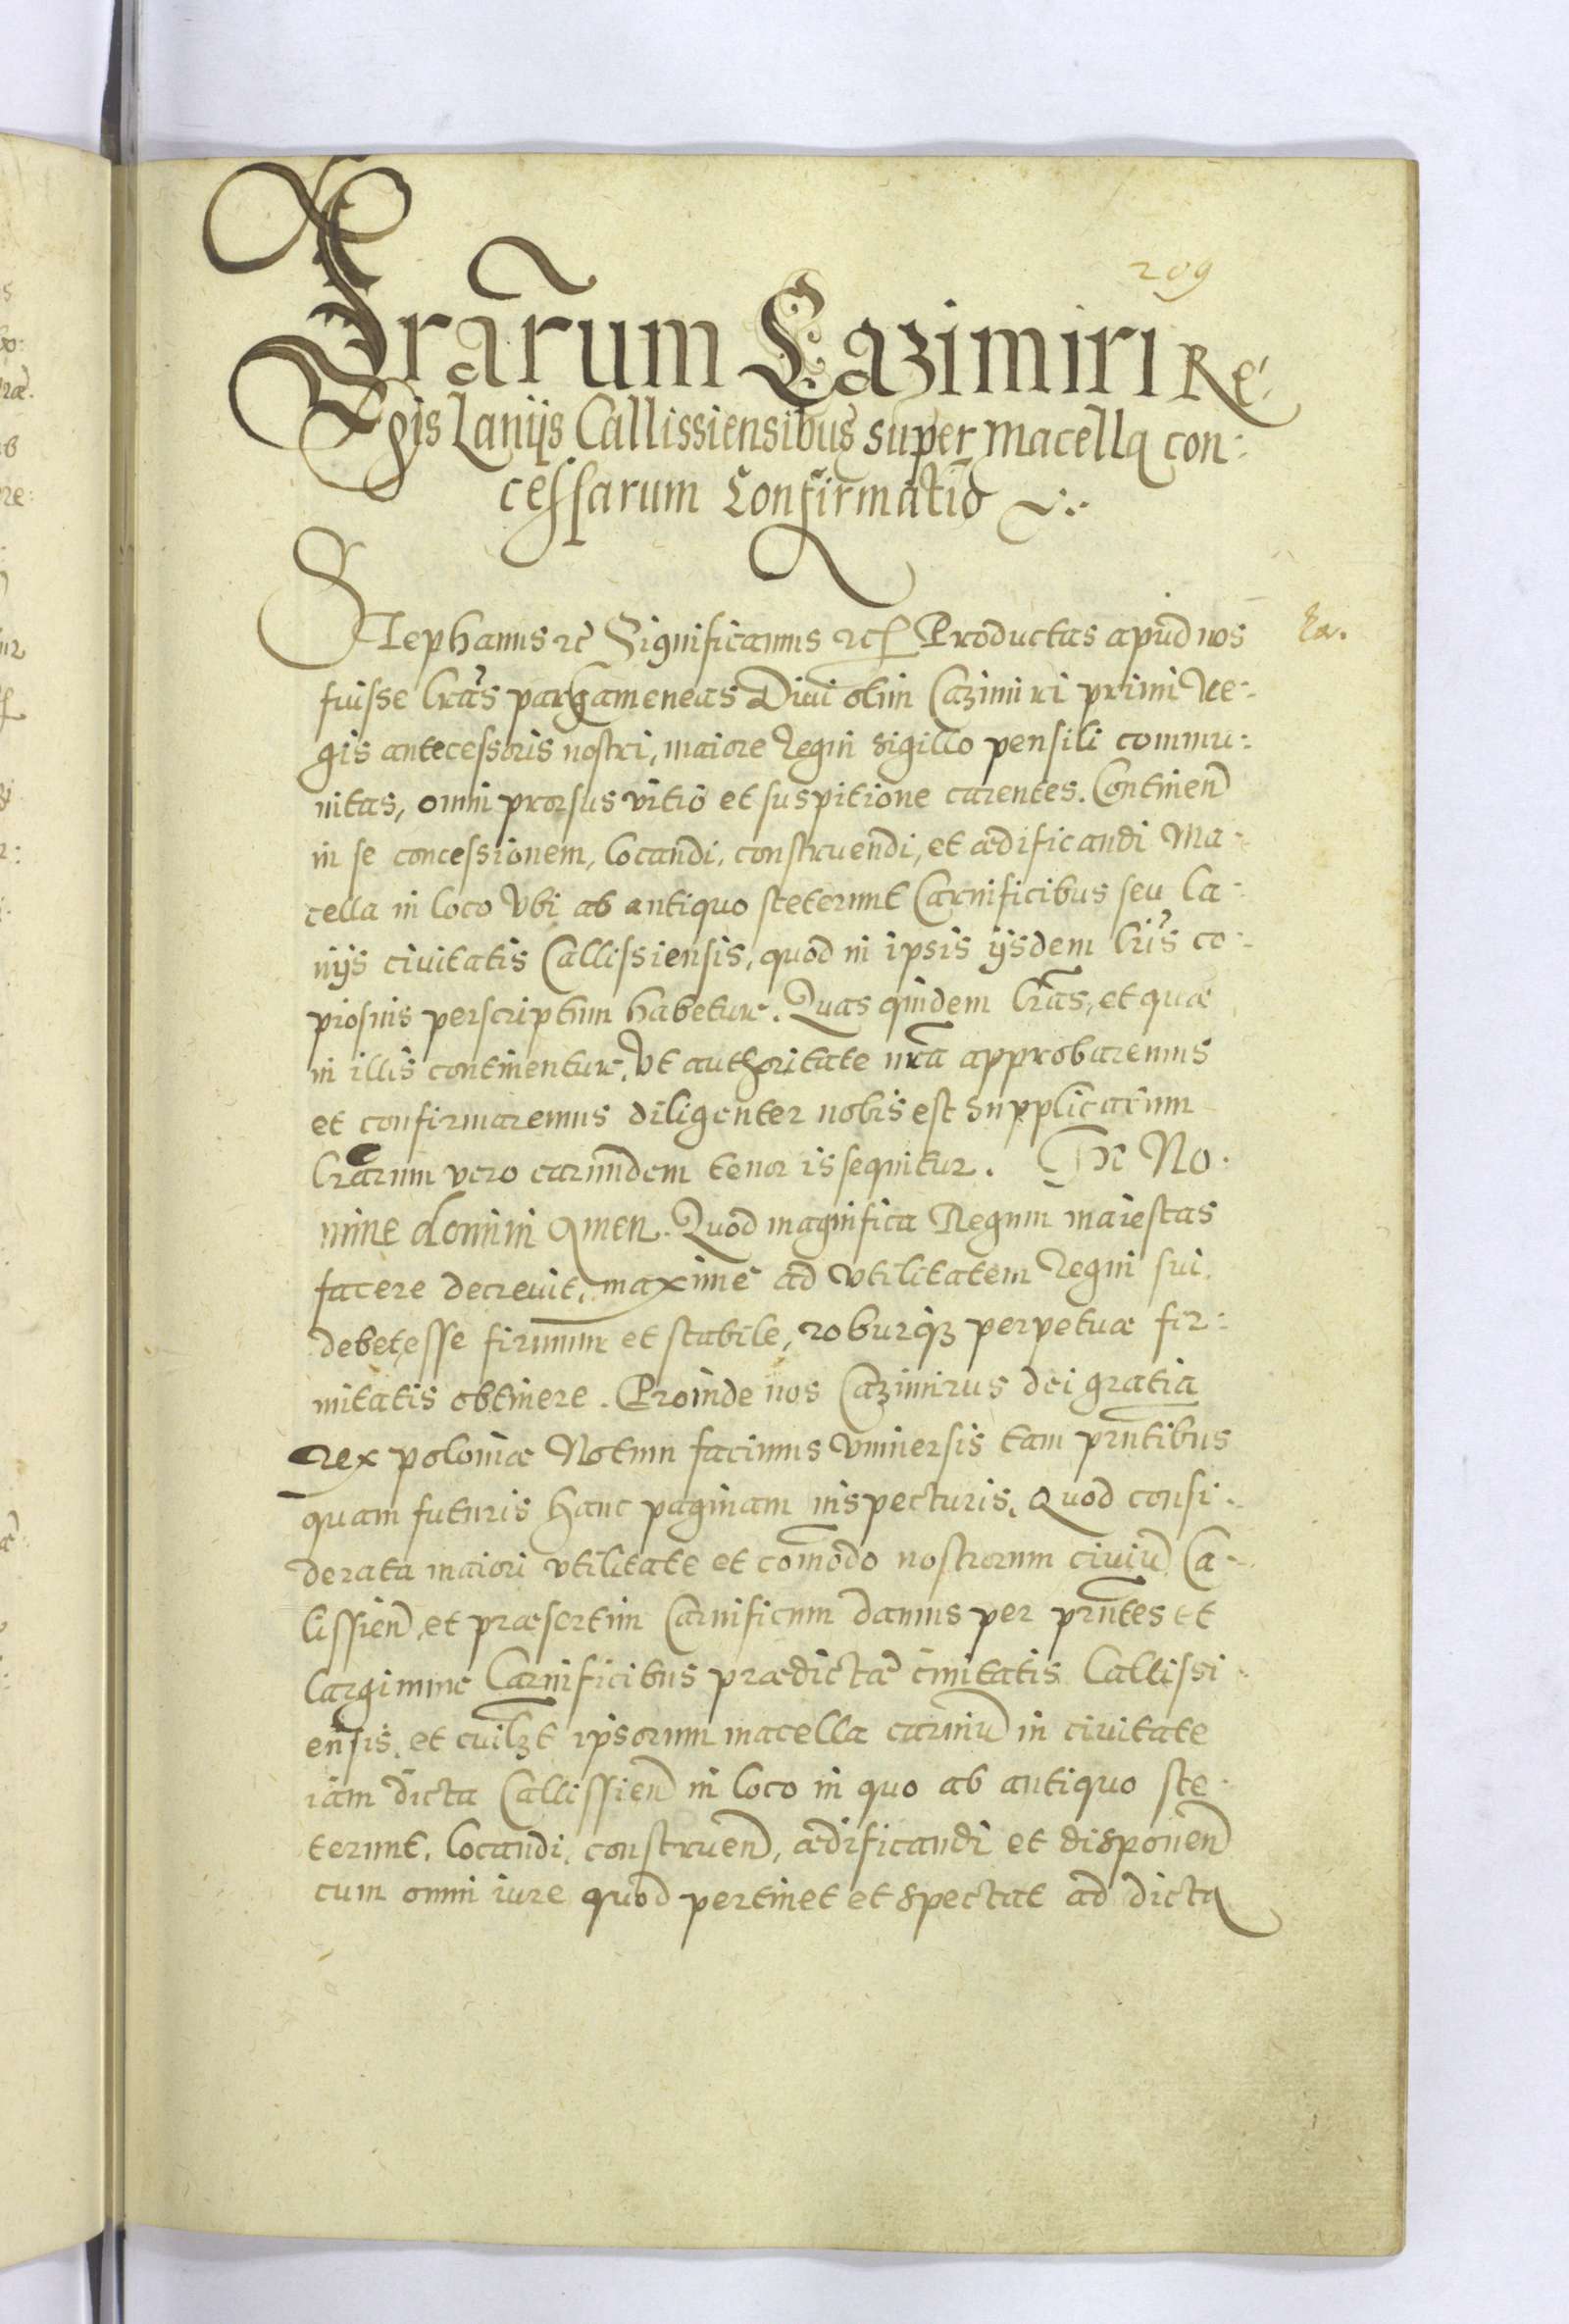 209
Lrãrum Cazimiri Re:
gis Laniis Callissiensibus super Macella con:
cessarum Confirmatio
Stephanus rc̃ Significamus rc̃ Productas apud nos
fuisse lrãs pargameneas Divi olim Cazimiri primi Re:
gis antecessoris nostri, maiore Regni sigillo pensili commu:
nitas, omni prorsus vitio et suspitione carentes. Continen̄
in se concessionem, locandi, construendi, et ædificandi Ma:
cella in loco Vbi ab antiquo steterunt Carnificibus seu La:
niis civitatis Callissiensis, quod in ipsis iisdem lrĩs co:
piosius perscriptum habetur. Quas quidem lrãs, et quæ
in illis continentur, Vt authoritate nrã approbaremus
et confirmaremus diligenter nobis est supplicatum
lrãrum vero earundem tenor is sequitur. In No:
mine domini Amen. Quod magnifica Regum maiestas
facere decrevit, maxime ad vtilitatem Regni sui,
debet esse firmum et stabile, roburq̃ perpetuæ fir:
mitatis obtinere. Proinde nos Cazimirus dei gratia
rex poloniæ Notum facimus vniuersis tam prñtibus
quam futuris hanc paginam inspecturis, Quod consi:
derata maiori vtilitate et com̄odo nostrorum civiū Ca:
lissien̄, et præsertim Carnificum damus per prñtes et
largimur Carnificibus prædictæ civitatis Callissi:
ensis, et cuilꝫt ipsorum macella carniū in civitate
iam dicta Callissien̄ in loco in quo ab antiquo ste:
terunt, locandi, construen̄, ædificandi et disponen̄
cum omni iure quod pertinet et spectat ad dicta